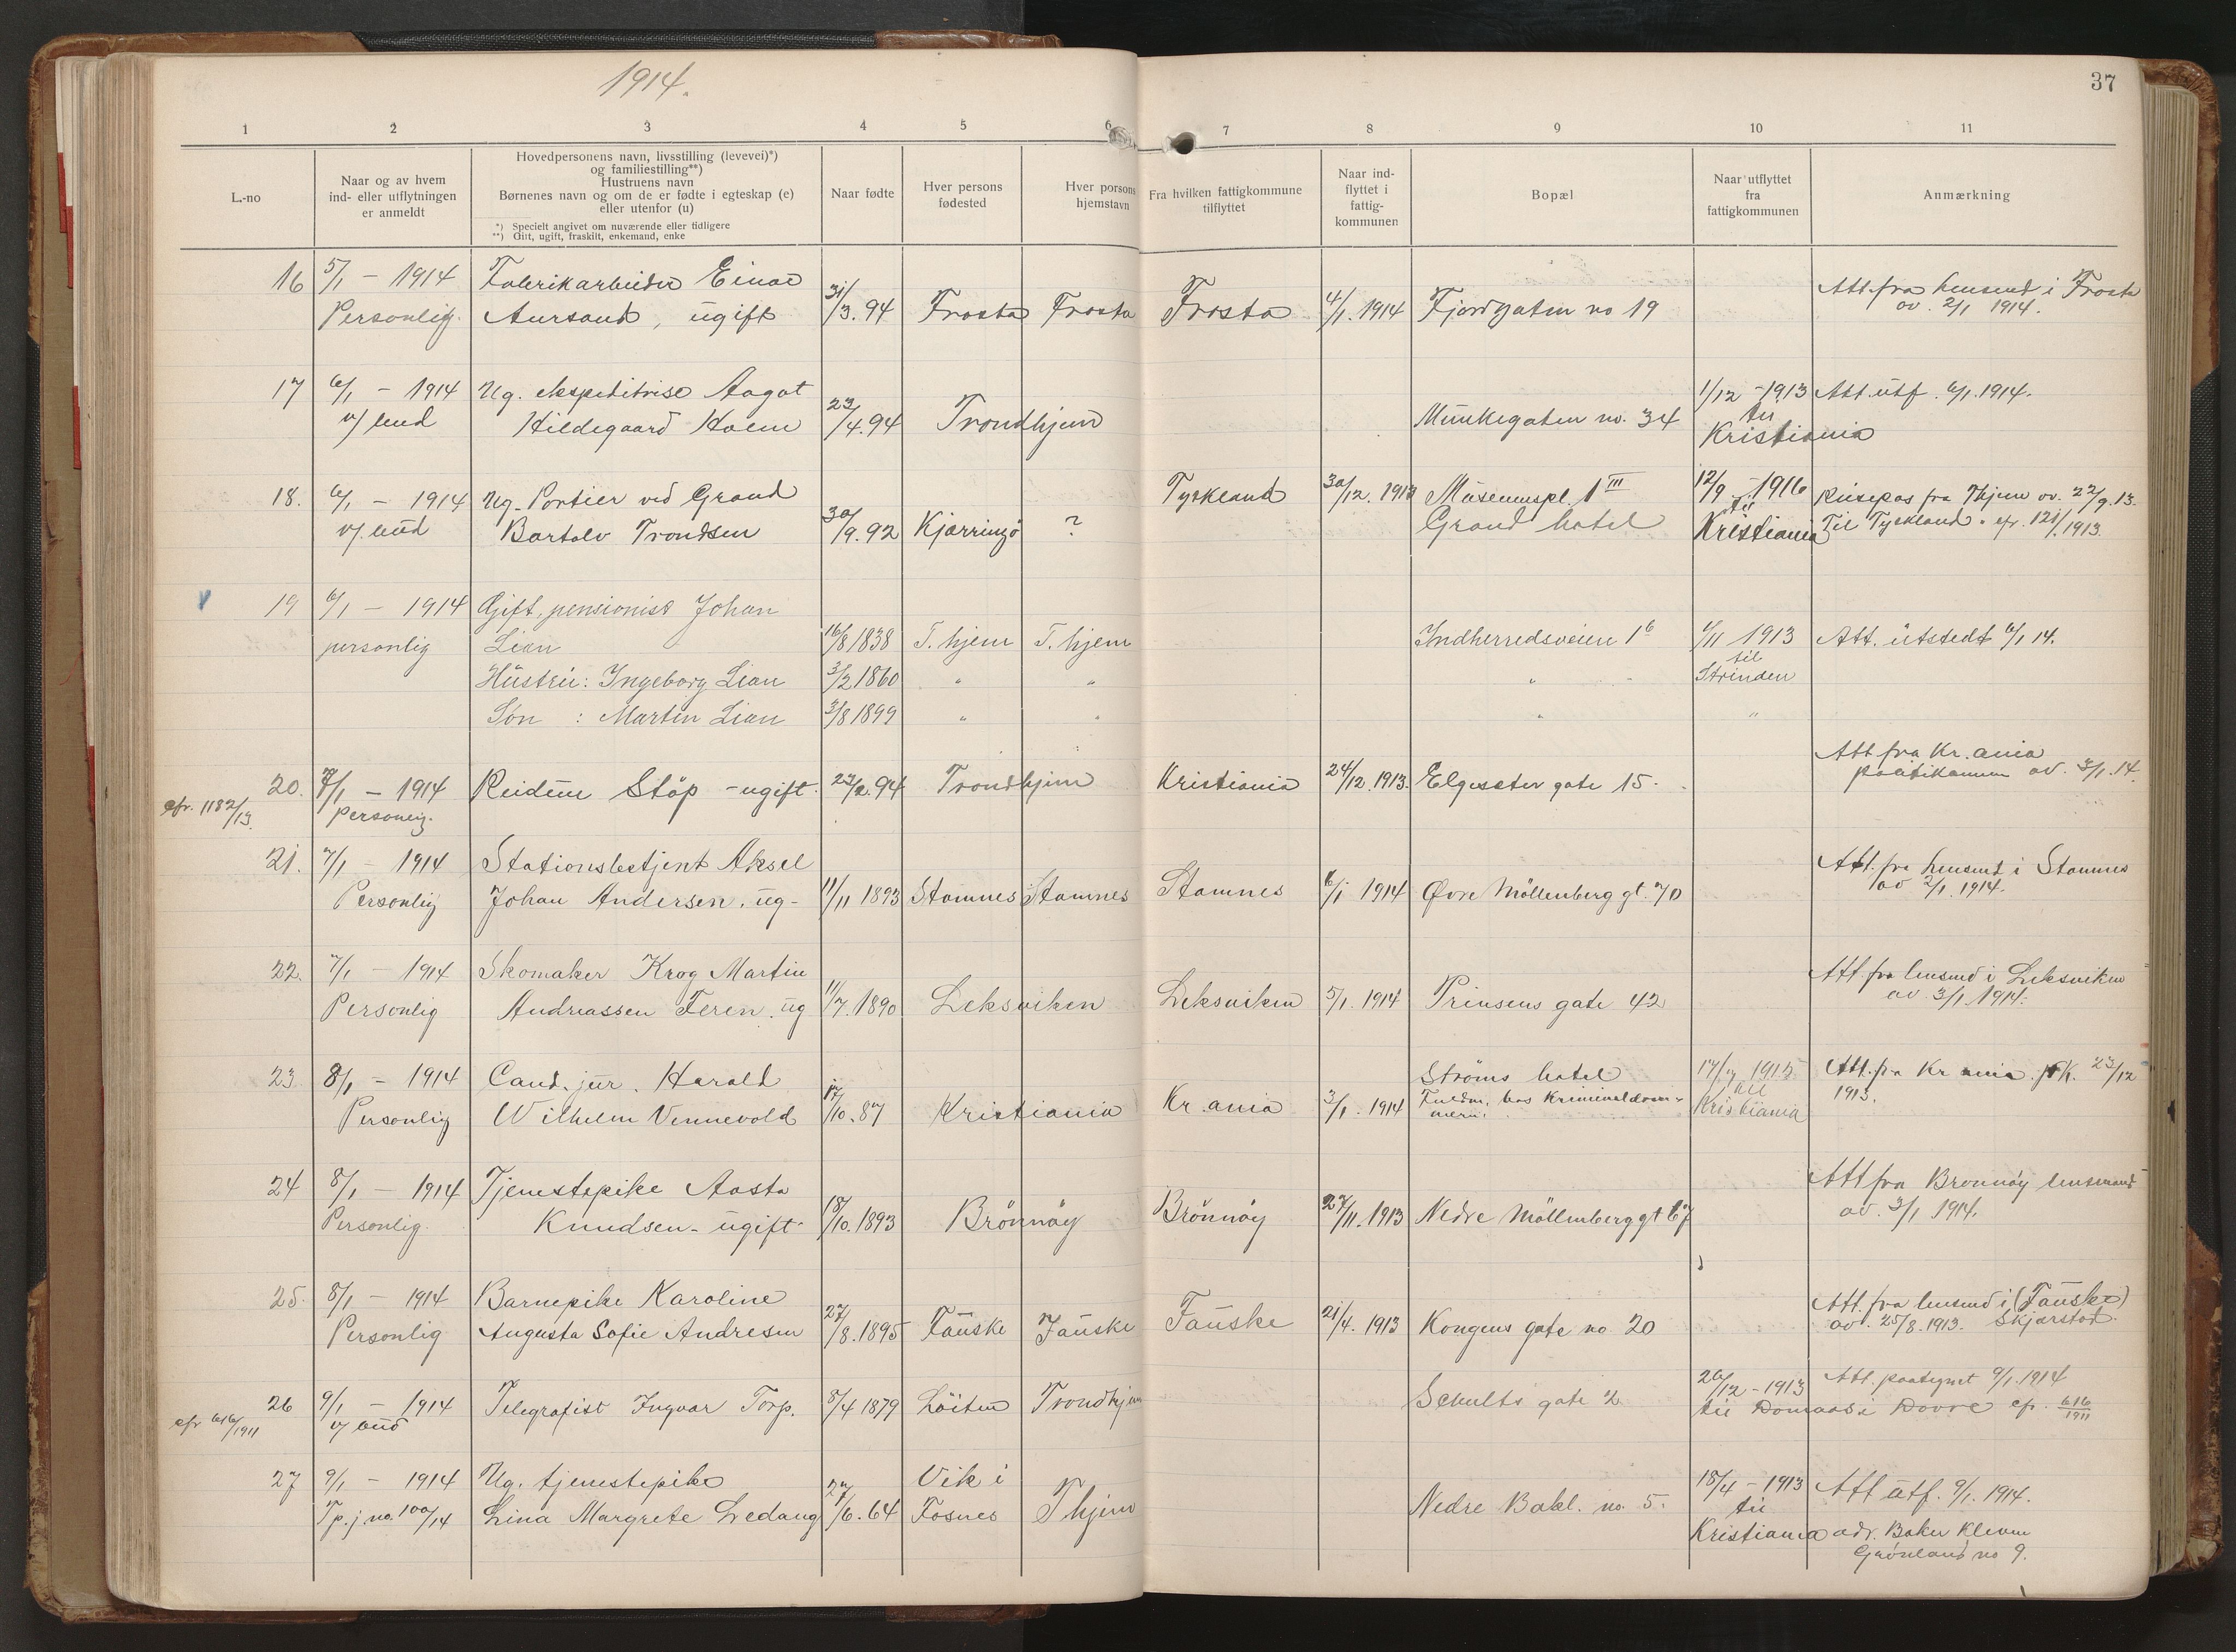 1914.
37
1 2 3 4 5 6 7 8 9 10 11
L.-no
Naar og av hvem
ind- eller utflytningen
er anmeldt
Hovedpersonens navn, livsstilling (levevei)*)
og familiestilling**)
Hustruens navn
Børnenes navn og om de er fødte i egteskap (e)
eller utenfor (u)
*) Specielt angivet om nuværende eller tidligere
**) Gift, ugift, fraskilt, enkemand, enke
Naar fødte
Hver persons
fødested
Hver persons
hjemstavn
Fra hvilken fattigkommune
tilflyttet
Naar ind-
flyttet i
fattig-
kommunen
Bopæl
Naar utflyttet
fra
fattigkommunen
Anmærkning
16 5/1 - 1914 Fabrikarbeider Einar Att. fra lensmd i Frosta
Personlig. Aursand, ugift 31/3. 94 Frosta Frosta Frosta 4/1. 1914 Fjordgaten no 19 av. 2/1 1914.
17 6/1 - 1914 Ug. ekspeditrise Aagot 1/12 - 1913 Att. utf. 6/1. 1914.
v/ bud Hildegaard Holm 23/4. 94 Trondhjem Munkegaten no. 34 til
Kristiania
18. 6/1 - 1914 Ug. Portier ved Grand Tyskland 30/12. 1913 Museumspl. 1 III 12/9 - 1916 Reisepas fra Thjem av. 22/9. 13.
v/ bud Bartolv Trondsen 30/9. 92 Kjærringö ? Grand hotel til Kristiania Til Tyskland. cfr. 121/1913.
19 6/1 - 1914 Gift, pensionist Johan
personlig Lian 16/8 1838 T. hjem T. hjem Indherredsveien 1b /11 1913 Att. utstedt 6/1 14.
til
Hustru: Ingeborg Lian 3/2 1860 " " " " Strinden
Søn : Martin Lian 3/8 1899 " " " "
Att fra Kr.ania
20. 7/1 - 1914 Reidun Stöp - ugift. 23/2. 94 Trondhjem Kristiania 24/12. 1913. Elgeseter gate 15. politikammer av. 3/1. 14.
cfr. 1182/13. personlig.
21. 7/1 - 1914 Stationsbetjent Aksel Att. fra lensmd i Stamnes
Personlig Johan Andersen, ug- 11/11 1893 Stamnes Stamnes Stamnes 6/1 1914 Øvre Möllenberg gt. 70 av 2/1. 1914.
22. 7/1 - 1914 Skomaker Krog Martin Att. fra lensmd i Leksviken
Personlig Andreassen Feren. ug 11/7. 1890 Leksviken Leksviken 5/1. 1914 Prinsens gate 42 av. 3/1. 1914.
23. 8/1 - 1914 Cand. jur. Harald Ströms hotel 17/7 1915 Att. fra Kr ania p.k. 23/12
Personlig Wilhelm Vennevold 17/10. 87 Kristiania Kr. ania 3/1. 1914 Fuldm. hos Kriminaldom- til 1913.
meren. Kristiania
24 8/1 - 1914 Tjenestepike Aasta Att fra Brønnøy lensmand
Personlig. Knudsen - ugift 18/10. 1893 Brönnöy Brönnöy 27/11. 1913 Nedre Möllenberg gt 67 av. 3/1 1914.
25. 8/1 - 1914 Barnepike Karoline Att. fra lensmd i (Fauske)
Personlig Augusta Sofie Andresen 27/8. 1895 Fauske Fauske Fauske 21/4. 1913 Kongens gate no 20 av. 25/8. 1913. Skjærstad.
26 9/1 - 1914 Telegrafist Ingvar Torp. 8/4 1879 Löiten Trondhjem Schults gate 2 26/12 - 1913 Att. paategnet 9/1. 1914
cfr 616/1911 v/ bud til Domaas i Dovre cfr. 616/1911
27 9/1 - 1914 Ug. tjenestepike Vik i 18/4 - 1913 Att utf. 9/1. 1914.
Tp. j no. 100/14 Lina Margrete Ledang 27/6. 64 Fosnes Thjem Nedre Bakl. no. 5. til
Kristiania adr. Baker Kleven
Grönland no 9.